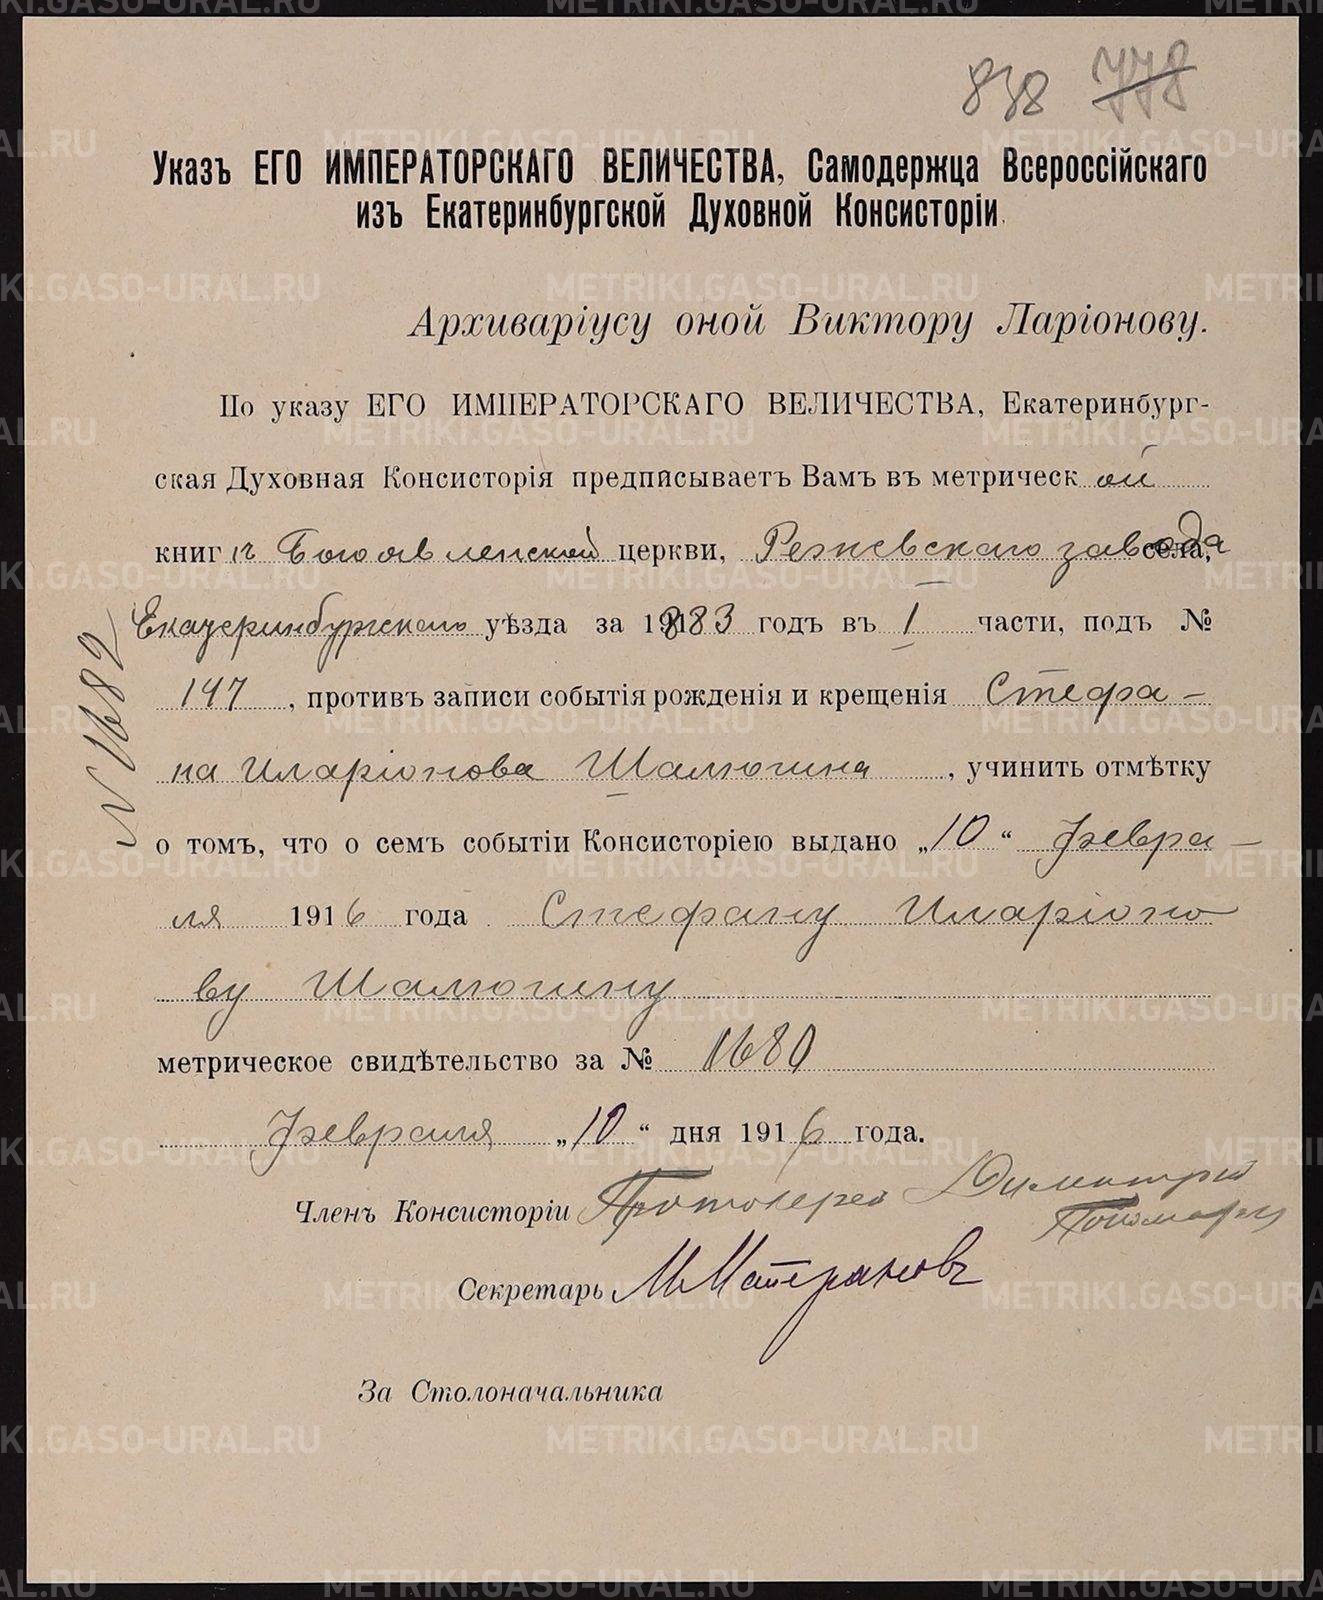 838 778
Указъ ЕГО ИМПЕРАТОРСКАГО ВЕЛИЧЕСТВА, Самодержца Всероссійскаго
изъ Екатеринбургской Духовной Консисторіи.
Архиваріусу оной Виктору Ларіонову.
По указу ЕГО ИМПЕРАТОРСКАГО ВЕЛИЧЕСТВА, Екатеринбург-
ская Духовная Консисторія предписываетъ Вамъ въ метрической
книгѣ Богоявленской церкви, Режевскаго завода села,
Екатеринбургскаго уѣзда за 1883 годъ въ I части, подъ №
147, противъ записи событія рожденія и крещенія Стефа-
на Иларіонова Шалюгина, учинить отмѣтку
о томъ, что о семъ событіи Консисторіею выдано „10“ Февра-
ля 1916 года Стефану Иларіоно
ву Шалюгину
метрическое свидѣтельство за № 1680
Февраля „10“ дня 1916 года.
Членъ Консисторіи Протоіерей Димитрій
Секретарь М Матерановъ
За Столоначальника
№ 1682
METRIKI.GASO-URAL.RU